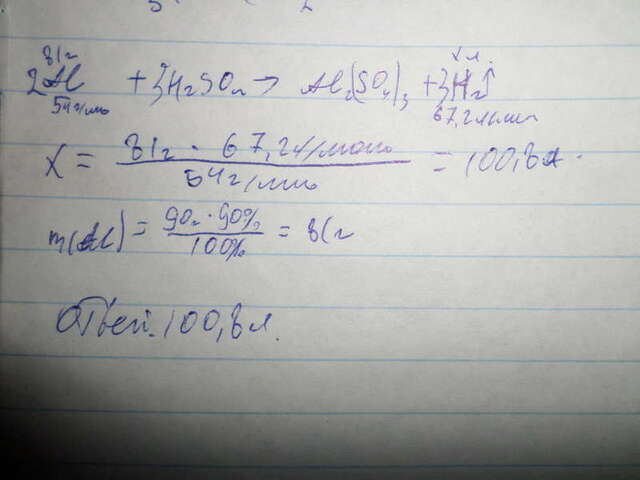 81г x л
2Al + 3H2SO4 → Al2(SO4)3 + 3H2↑
54 г/моль 67,2 л/моль
X = 81г · 67,2 л/моль / 54 г/моль = 100,8 л.
m(Al) = 90г · 90% / 100% = 81г
Ответ: 100,8 л.